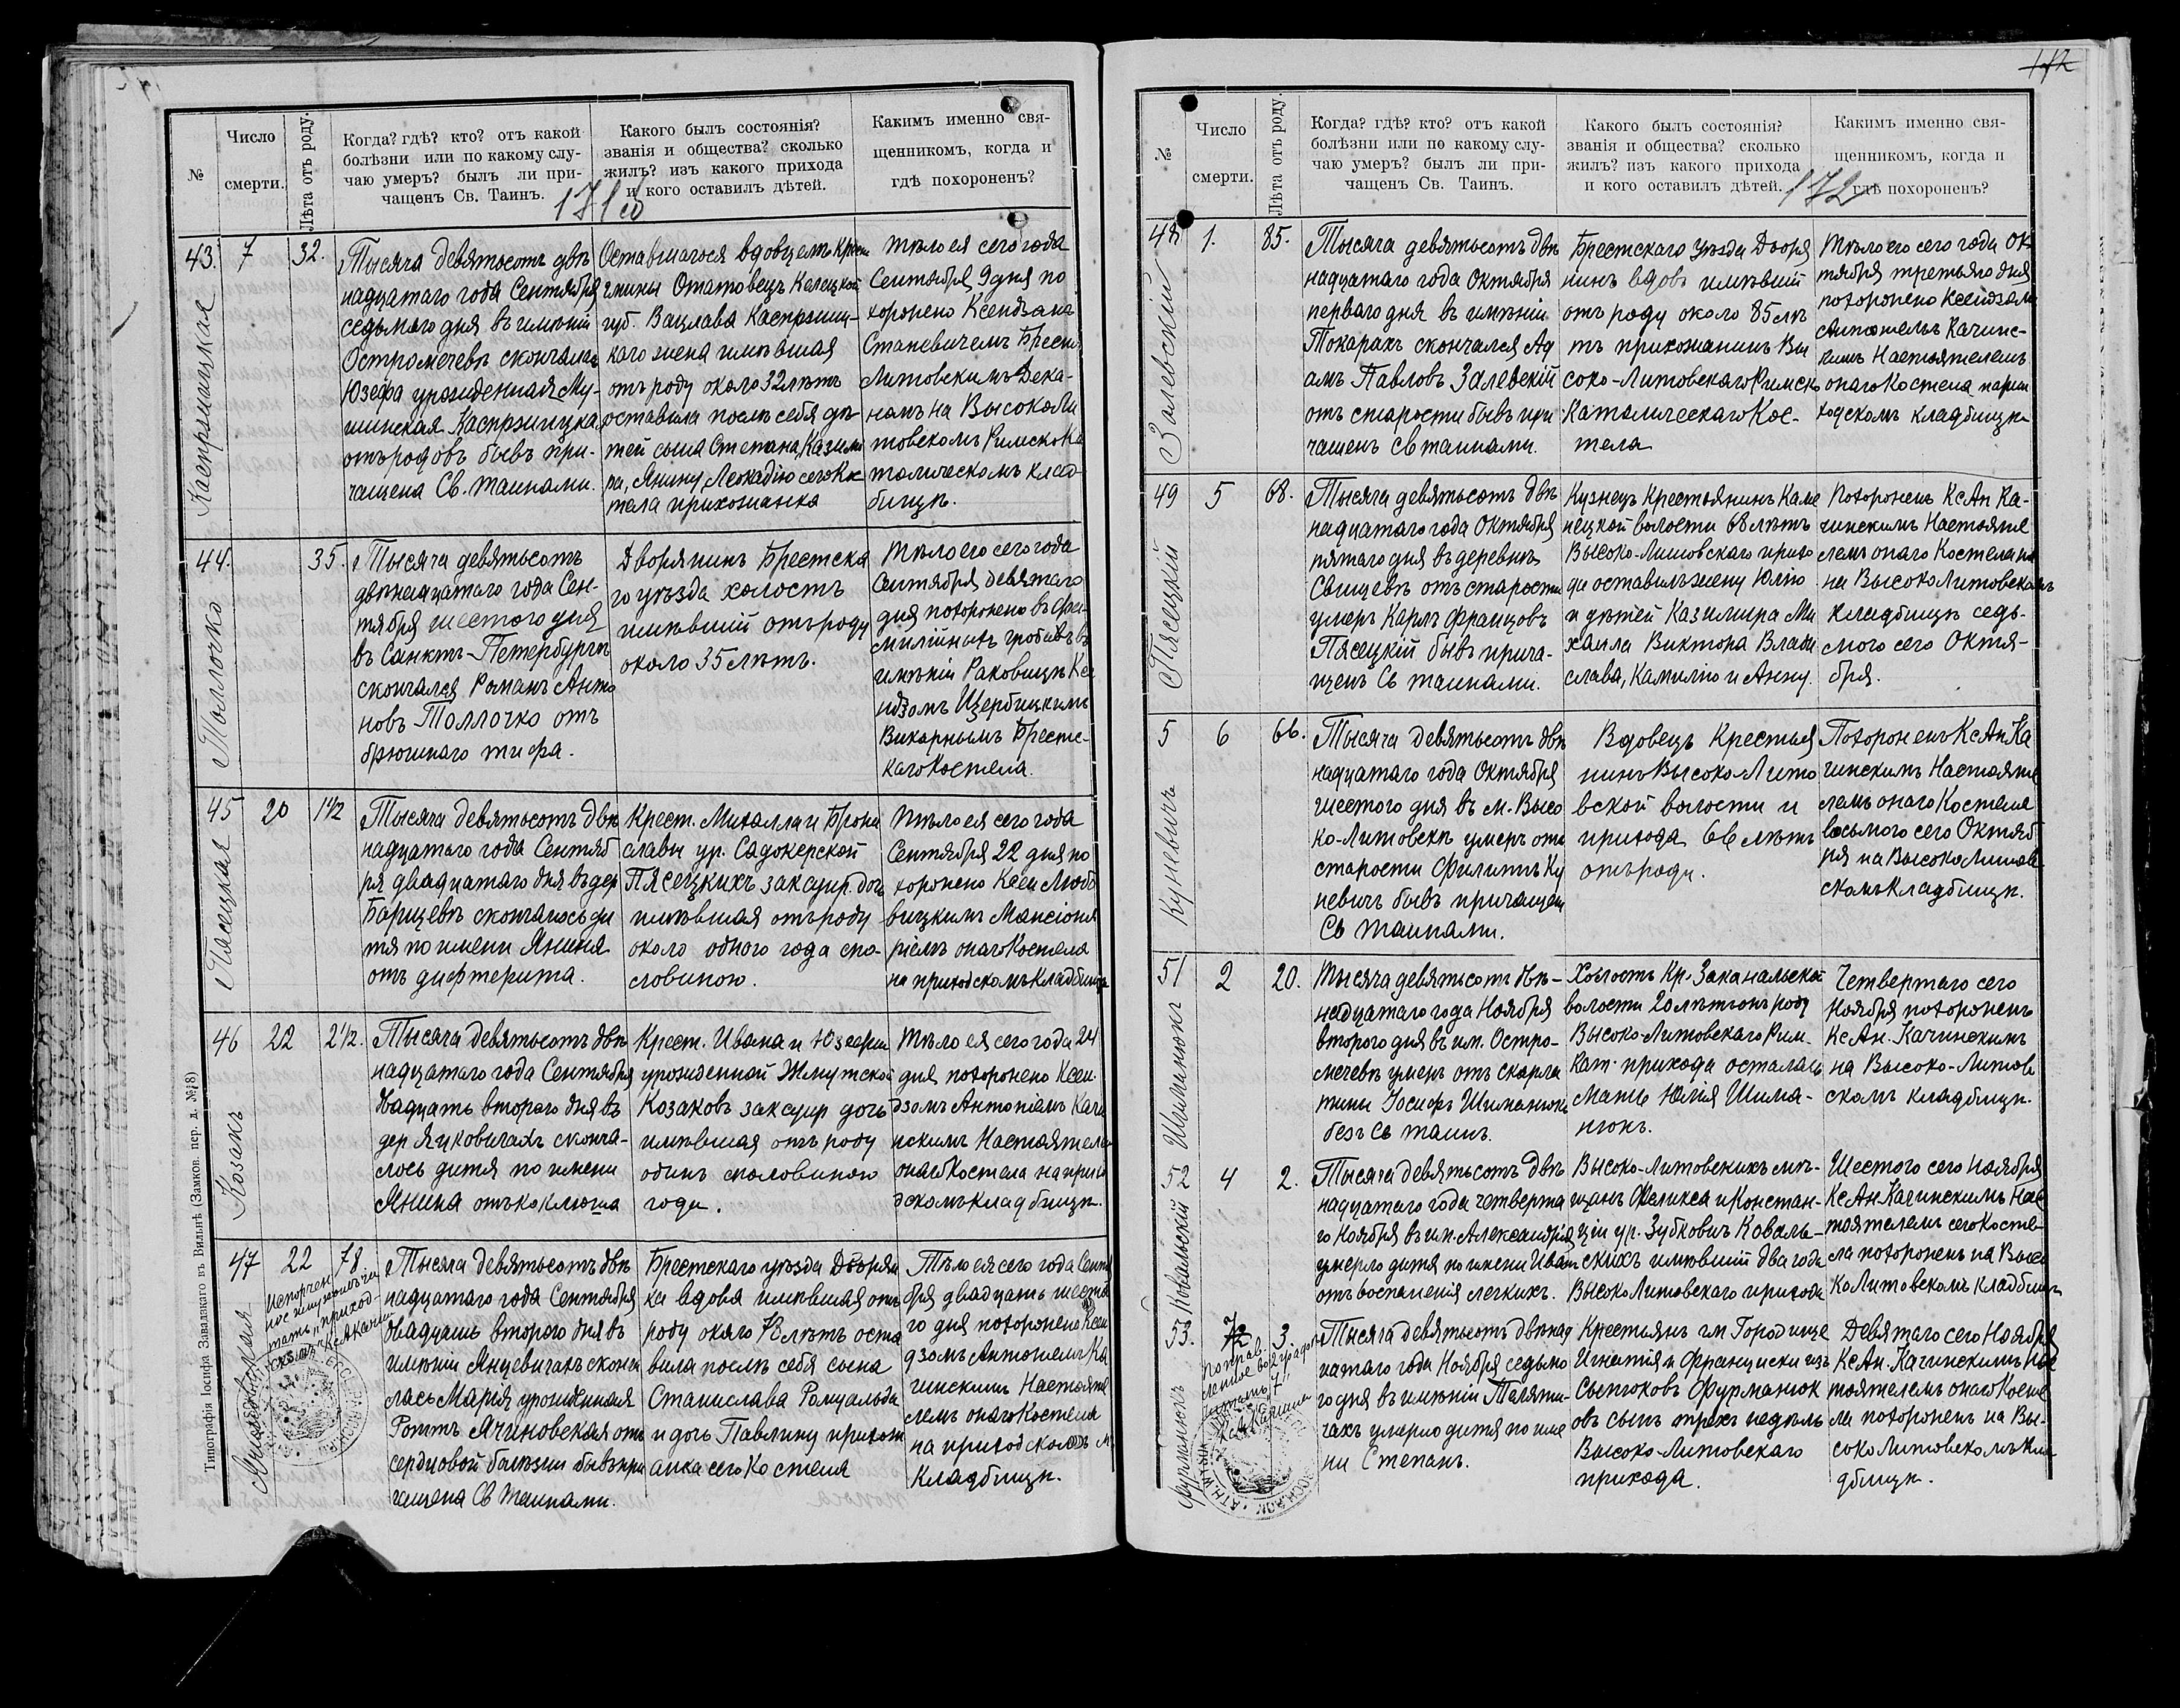 №
Число
смерти.
Лѣта отъ роду.
Когда? гдѣ? кто? отъ какой
болѣзни или по какому слу-
чаю умеръ? былъ ли при-
чащенъ Св. Таинъ.
Какого былъ состоянія?
званія и общества? сколько
жилъ? изъ какого прихода
и кого оставилъ дѣтей.
Какимъ именно свя-
щенникомъ, когда и
гдѣ похороненъ?
171 об
43.
7
32.
Каспржицкая
Тысяча девятьсотъ двѣ
надцатаго года Сентября
седьмого дня въ имѣніи
Остромечевѣ скончалась
Юзефа урожденная Му-
шинская Каспржицка
отъ родовъ бывъ при-
чащена Св. таинами.
Оставшагося вдовцемъ Крест
гмины Опатовецъ Келецкой
губ. Вацлава Каспржиц-
каго жена имѣвшая
отъ роду около 32 лѣтъ
оставила послѣ себя дѣ-
тей сына Степана, Казими
ра, Янину, Леокадію сего Кос
тела прихожанка
тѣло ея сего года
Сентября 9 дня по
хоронено Ксендзомъ
Станевичемъ Брест
Литовскимъ Дека-
номъ на Высоко Ли
товскомъ Римско Ка
толическомъ клад
бищѣ.
44.
35.
Толлочко
Тысяча девятьсотъ
двѣнадцатаго года Сен-
тября шестого дня
въ Санктъ-Петербургѣ
скончался Романъ Анто
новъ Толлочко отъ
брюшнаго тифа.
Дворянинъ Брестска
го уѣзда холостъ
имѣвшій отъ роду
около 35 лѣтъ.
тѣло его сего года
Сентября девятаго
дня похоронено въ фа-
милійномъ гробѣ въ
имѣніи Раковицѣ Ксе
ндзомъ Щербицкимъ
Викарнымъ Брестс-
каго Костела.
45
20
1 1/2
Пясецкая
Тысяча девятьсотъ двѣ
надцатаго года Сентяб
ря двадцатаго дня въ дер
Барщевѣ скончалось ди
тя по имени Янина
отъ дифтерита.
Крест. Михаила и Брони
славы ур. Садокерской
Пясецкихъ законн. дочь
имѣвшая отъ роду
около одного года спо-
ловиною.
тѣло ея сего года
Сентября 22 дня по
хоронено Ксен Любо
вицкимъ Мансіона
ріемъ онаго Костела
на приходскомъ кладбищѣ
46
22
2 1/2.
Козакъ
Тысяча девятьсотъ двѣ
надцатаго года Сентября
двадцать второго дня въ
дер Яцковичахъ сконча-
лось дитя по имени
Янина отъ коклюша
Крест. Ивана и Юзефы
урожденной Жмутской
Козаковъ законн дочь
имѣвшая отъ роду
одинъ споловиною
года.
тѣло ея сего года 24
дня похоронено Ксен
дзомъ Антоніемъ Качи
нскимъ Настоятелемъ
онаго Костела на прихо
дскомъ кладбищѣ.
47
22
78
Ячиновская
Тысяча девятьсотъ двѣ
надцатаго года Сентября
двадцать второго дня въ
имѣніи Янцевичахъ сконча
лась Марія урожденная
Роттъ Ячиновская отъ
сердцовой болѣзни бывъ при
чащена Св таинами.
Брестскаго уѣзда Дворян
ка вдова имѣвшая отъ
роду около 78 лѣтъ оста
вила послѣ себя сына
Станислава Ромуальда
и дочь Павлину прихож
анка сего Костела
Тѣло ея сего года Сентя
бря двадцать шеста
го дня похоронено Ксен
дзомъ Антоніемъ Ка
чинскимъ Настояте
лемъ онаго Костела
на приходскомъ
кладбищѣ.
Типографія Іосифа Завадзкаго въ Вильнѣ (Замков. пер. д. № 8)
172
№
Число
смерти.
Лѣта отъ роду.
Когда? гдѣ? кто? отъ какой
болѣзни или по какому слу-
чаю умеръ? былъ ли при-
чащенъ Св. Таинъ.
Какого былъ состоянія?
званія и общества? сколько
жилъ? изъ какого прихода
и кого оставилъ дѣтей.
Какимъ именно свя-
щенникомъ, когда и
гдѣ похороненъ?
172
48
1.
85.
Залевскій
Тысяча девятьсотъ двѣ
надцатаго года Октября
перваго дня въ имѣніи
Токарахъ скончался Ад
амъ Павловъ Залевскій
отъ старости бывъ при
чащенъ Св таинами.
Брестскаго уѣзда Дворя
нинъ вдовъ имѣвшій
отъ роду около 85 лѣ
тъ прихожанинъ Вы
соко-Литовскаго Римско
Католическаго Кос-
тела
тѣло его сего года Ок
тября третьяго дня
похоронено Ксендзомъ
Антоніемъ Качинс-
кимъ Настоятелемъ
онаго Костела на при
ходскомъ кладбищѣ
49
5
68.
Пясецкій
Тысяча девятьсотъ двѣ
надцатаго года Октября
пятаго дня въ деревнѣ
Свищевѣ отъ старости
умеръ Карлъ Францовъ
Пясецкій бывъ прича-
щенъ Св таинами.
Кузнецъ Крестьянинъ Каме
нецкой волости 68 лѣтъ
Высоко-Литовскаго прихо
да оставилъ жену Юлію
и дѣтей Казимира Ми
хаила Виктора Влади
слава, Камилію и Анну.
Похороненъ Кс Ан Ка-
чинскимъ Настояте
лемъ онаго Костела
на Высоко Литовскомъ
кладбищѣ седь-
мого сего Октя-
бря.
5
6
66.
Куневичъ
Тысяча девятьсотъ двѣ
надцатаго года Октября
шестого дня въ м. Высо
ко-Литовскѣ умеръ отъ
старости Филиппъ Ку
невичъ бывъ причащенъ
Св таинами.
Вдовецъ Крестья
нинъ Высоко-Лито
вской волости и
прихода 66 лѣтъ
отъ роду.
Похороненъ Кс Ан Ка
чинскимъ Настояте
лемъ онаго Костела
восьмого сего Октяб
ря на Высоко Литов
скомъ кладбищѣ.
51
2
20.
Шиманюкъ
Тысяча девятьсотъ двѣ-
надцатаго года Ноября
второго дня въ им. Остро-
мечевѣ умеръ отъ скарла
тины Іосифъ Шиманюкъ
безъ Св таинъ.
Холостъ Кр. Заканальской
волости 20 лѣтъ отъ роду
Высоко-Литовскаго Рим-
Кат. прихода осталась
Мать Юлія Шима-
нюкъ.
Четвертаго сего
Ноября похороненъ
Кс Ан. Качинскимъ
на Высоко-Литов
скомъ кладбищѣ.
52
4
2.
Ковальскій
Тысяча девятьсотъ двѣ
надцатаго года четверта
го Ноября въ им. Александрія
умерло дитя по имени Иванъ
отъ воспаленія легкихъ.
Высоко-Литовскихъ мѣ-
щанъ Феликса и Констан-
ціи ур. Зубковичъ Коваль-
скихъ имѣвшій два года
Высоко Литовскаго прихода
Шестого сего Ноября
Кс Ан. Качинскимъ Нас
тоятелемъ сего Косте-
ла похороненъ на Высо
ко Литовскомъ кладбищѣ
53.
3.
Фурманюкъ
Тысяча девятьсотъ двѣнад
цатаго года Ноября седьмо
го дня въ имѣніи Теляти-
чахъ умерло дитя по име
ни Степанъ.
Крестьянъ гм Городище
Игнатія и Францишки изъ
Сыпюковъ Фурманюк
овъ сынъ трехъ недѣль
Высоко-Литовскаго
прихода.
Девятаго сего Ноября
Кс Ан. Качинскимъ Нас
тоятелемъ онаго Косте
ла похороненъ на Вы-
соко Литовскомъ кла
дбищѣ.